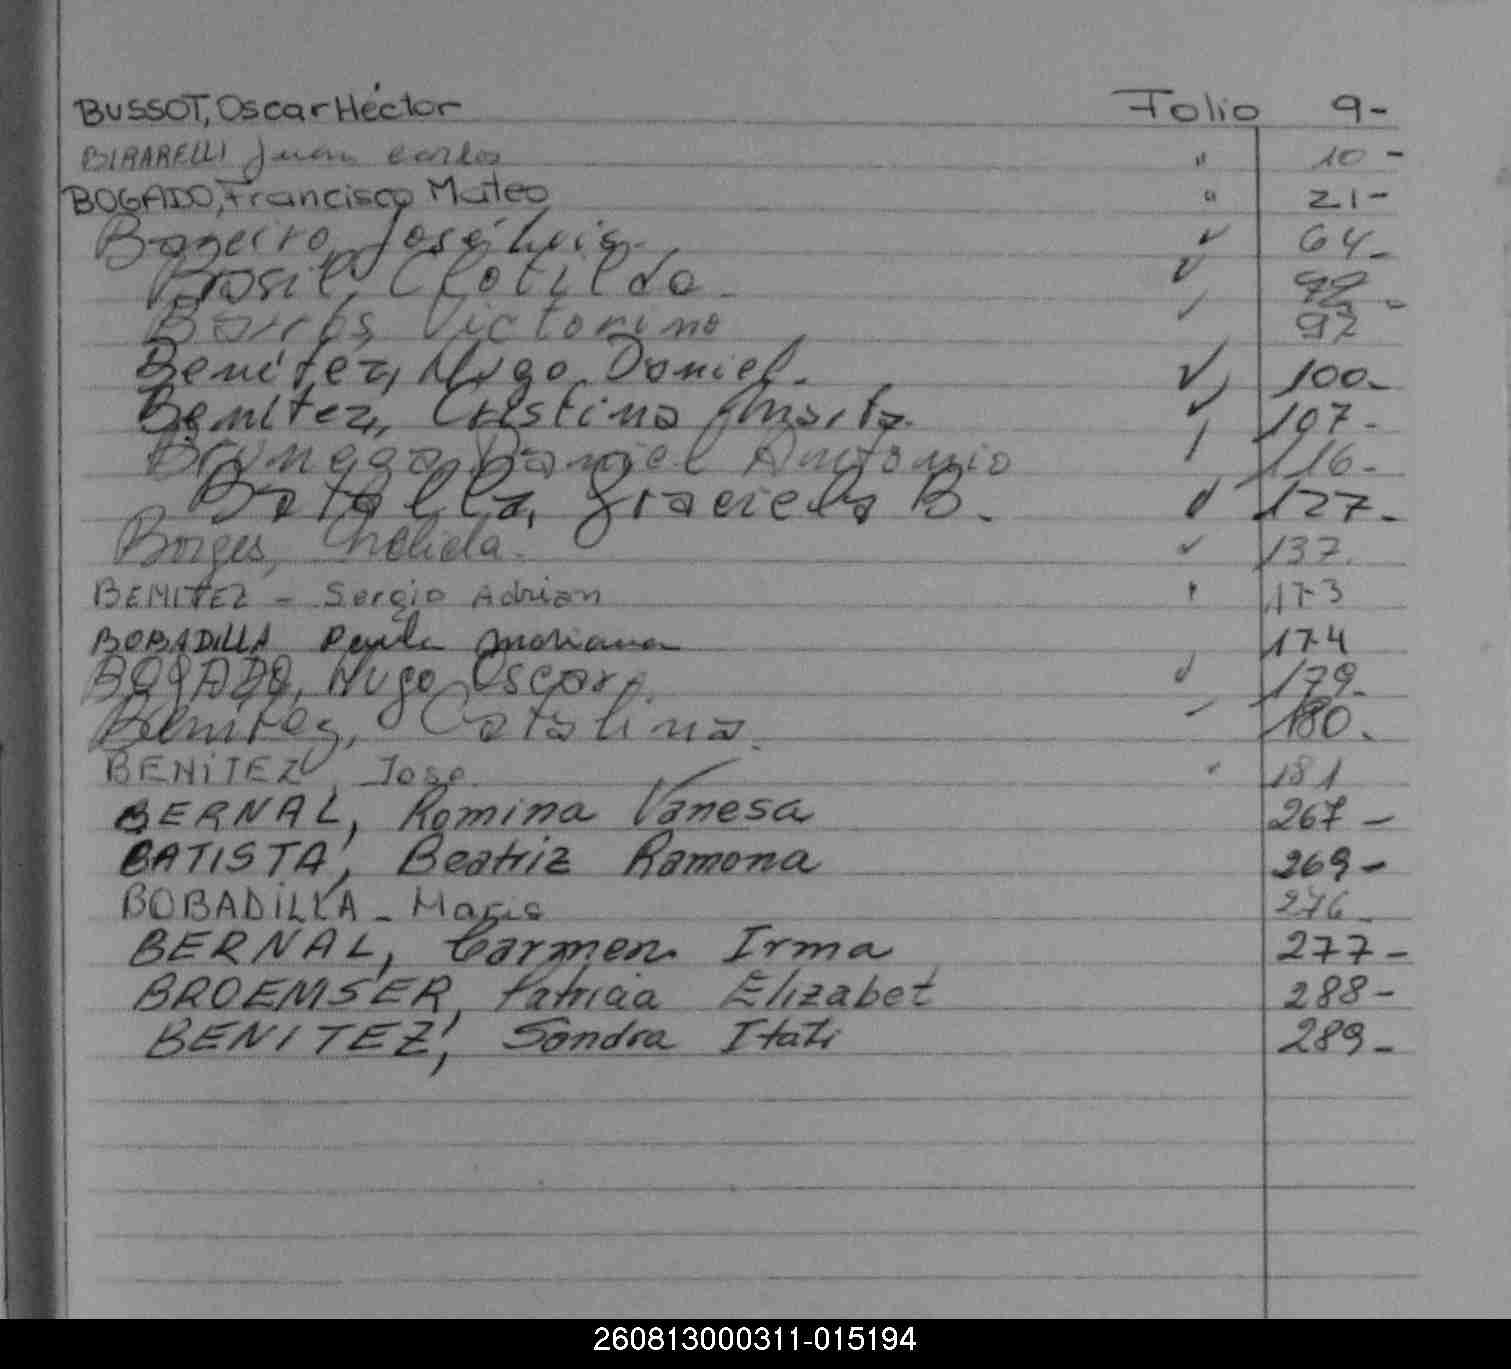 BUSSOT, Oscar Héctor Folio 9-
BIRARELLI Juan Carlos " 10-
BOGADO, Francisco Mateo " 21-
José Luis. ✓ 64-
Basil, Clotilda. ✓
Victorino ✓ 97
Benitez, Hugo Daniel. ✓ 100-
Benitez, Cristina Marta. ✓ 107-
Daniel Antonio 116-
Batalla, Graciela B. 127-
Borges, ✓ 137.
BENITEZ - Sergio Adrian 173
BOBADILLA Paula Mariana 174
BOGADO, Hugo Oscar. 179-
Benitez, Catalina. 180.
BENITEZ, Jose 181
BERNAL, Romina Vanesa 267-
BATISTA, Beatriz Ramona 269-
BOBADILLA - Maria 276-
BERNAL, Carmen Irma 277-
BROEMSER, Patricia Elizabet 288-
BENITEZ, Sandra Itati 289-
260813000311-015194